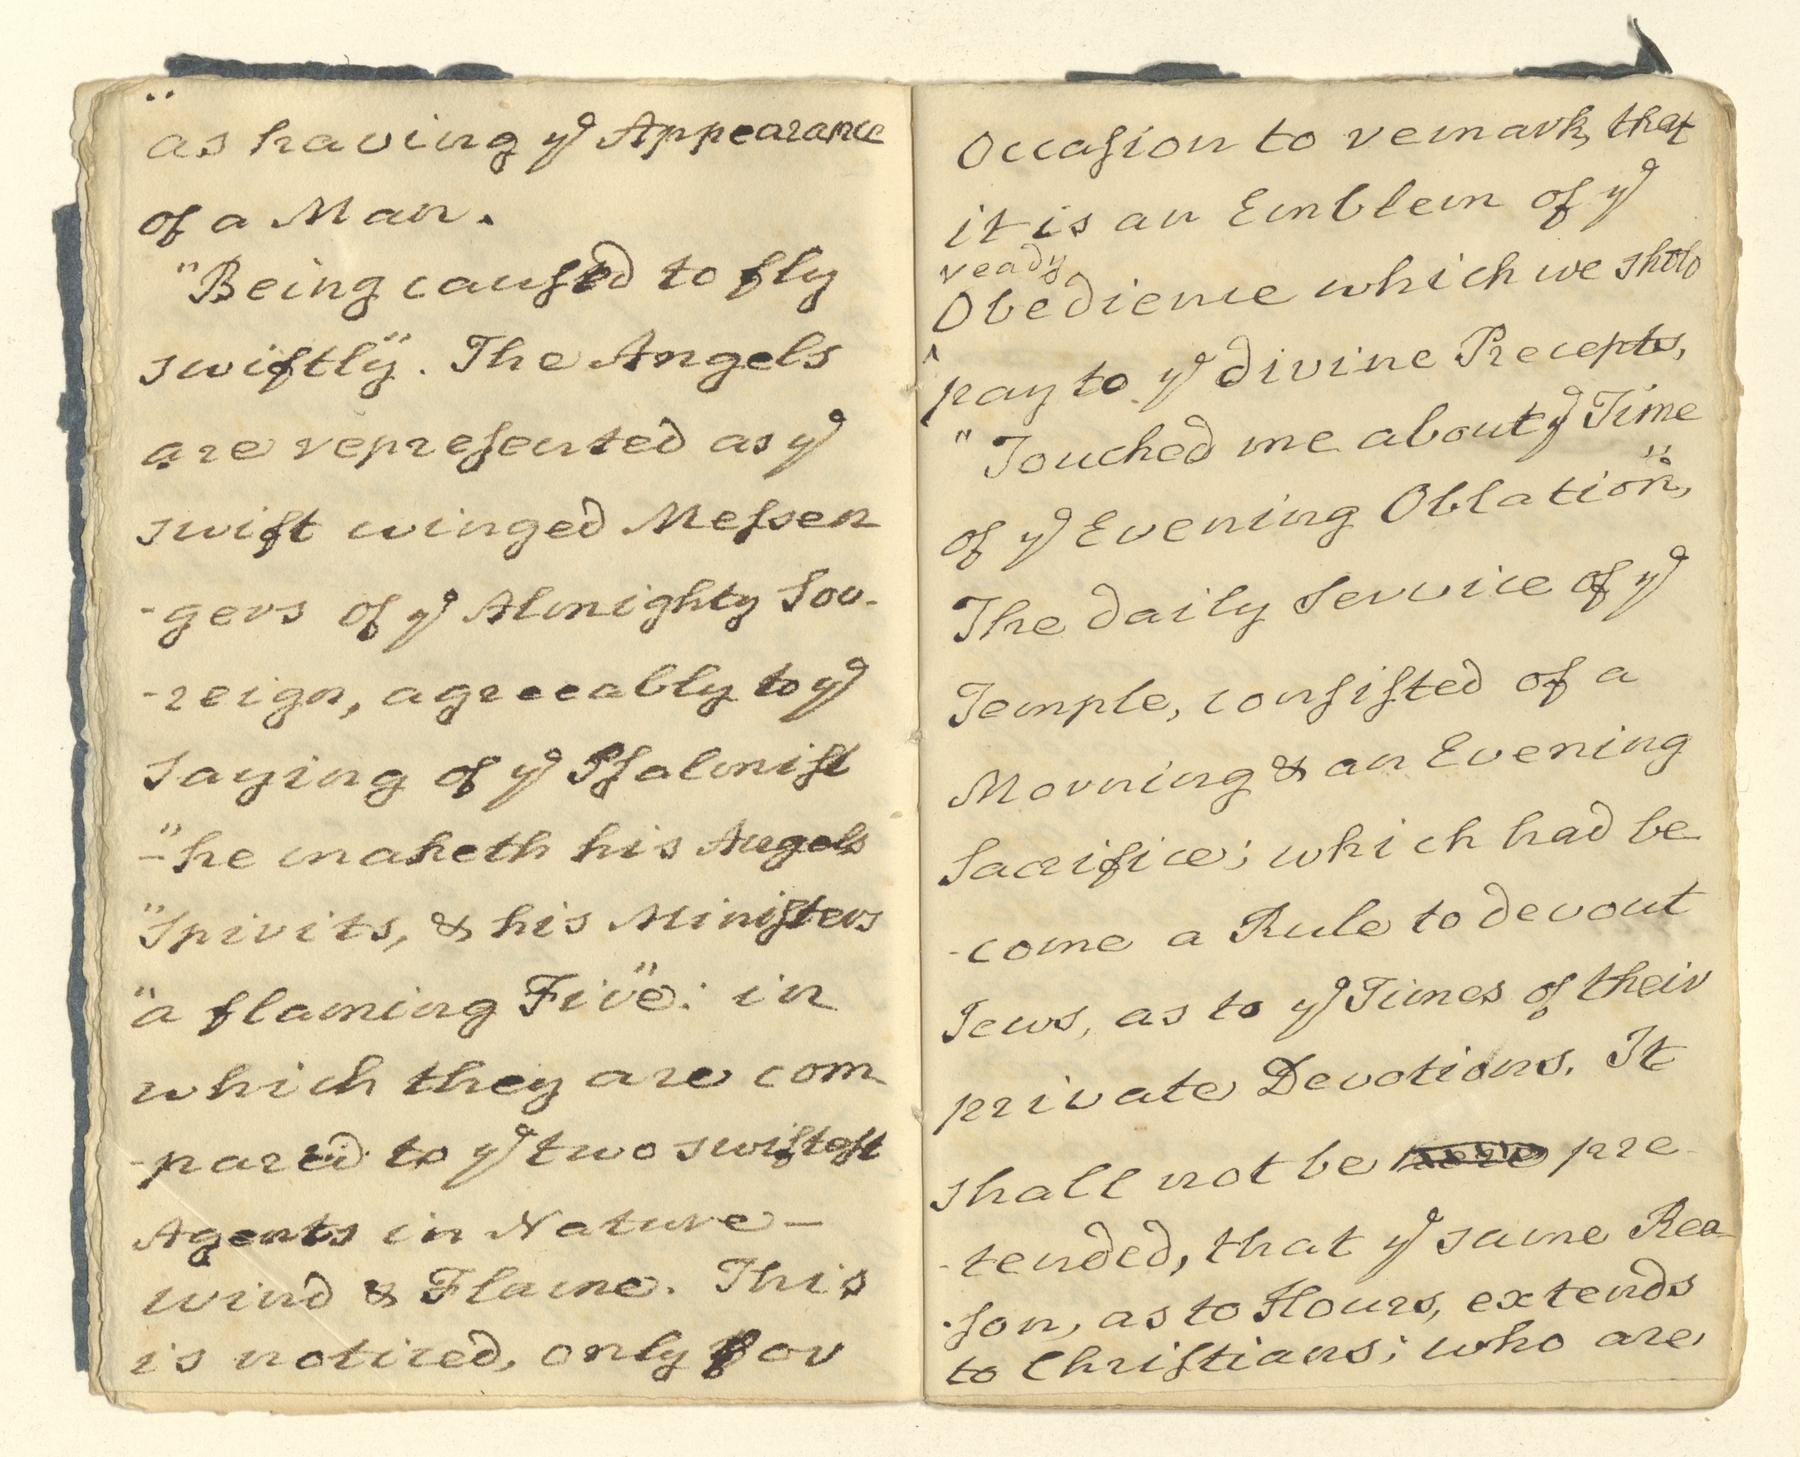 as having yᵉ Appearance
of a Man.
"Being caused to fly
swiftly". The Angels
are represented as yᵉ
swift winged Messen
-gers of yᵉ Almighty Sov-
-reign, agreeably to yᵉ
saying of yᵉ Psalmist
-"he maketh his Angels
"Spirits, & his Ministers
"a flaming Fire": in
which they are com-
-pared to yᵉ two swiftest
Agents in Nature —
Wind & Flame. This
is noticed, only for
Occasion to remark, that
it is an Emblem of yᵉ
ready
^ Obedience which we sho'd
pay to yᵉ divine Precepts,
"Touched me about yᵉ Time
of yᵉ Evening Oblation",
The daily Service of yᵉ
Temple, consisted of a
Morning & an Evening
Sacrifice; which had be
-come a Rule to devout
Jews, as to yᵉ Times of their
private Devotions. It
shall not be here pre-
-tended, that yᵉ same Rea-
-son, as to Hours, extends
to Christians; who are